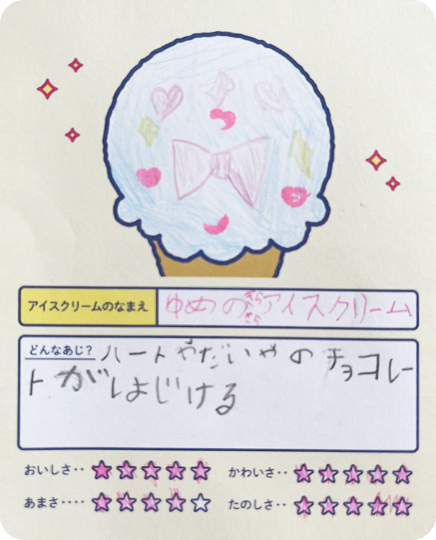 アイスクリームのなまえ
ゆめのきらきらアイスクリーム
どんなあじ? ハートやだいやのチョコレー
トがしよじける
おいしさ‥ ★★★★★ かわいさ‥ ★★★★★
あまさ‥‥ ★★★★☆ たのしさ‥ ★★★★★